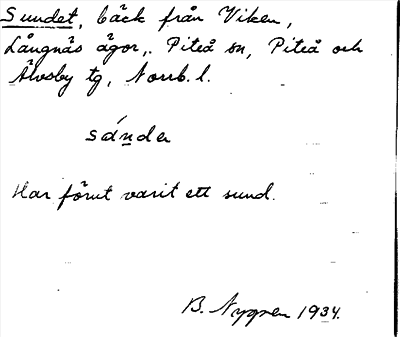 Sundet, bäck från Viken,
Långnäs ägor,. Piteå sn, Piteå och
Älvsby tg, Norrb. l.
sánder
Har förut varit ett sund.
B. Nygren 1934.